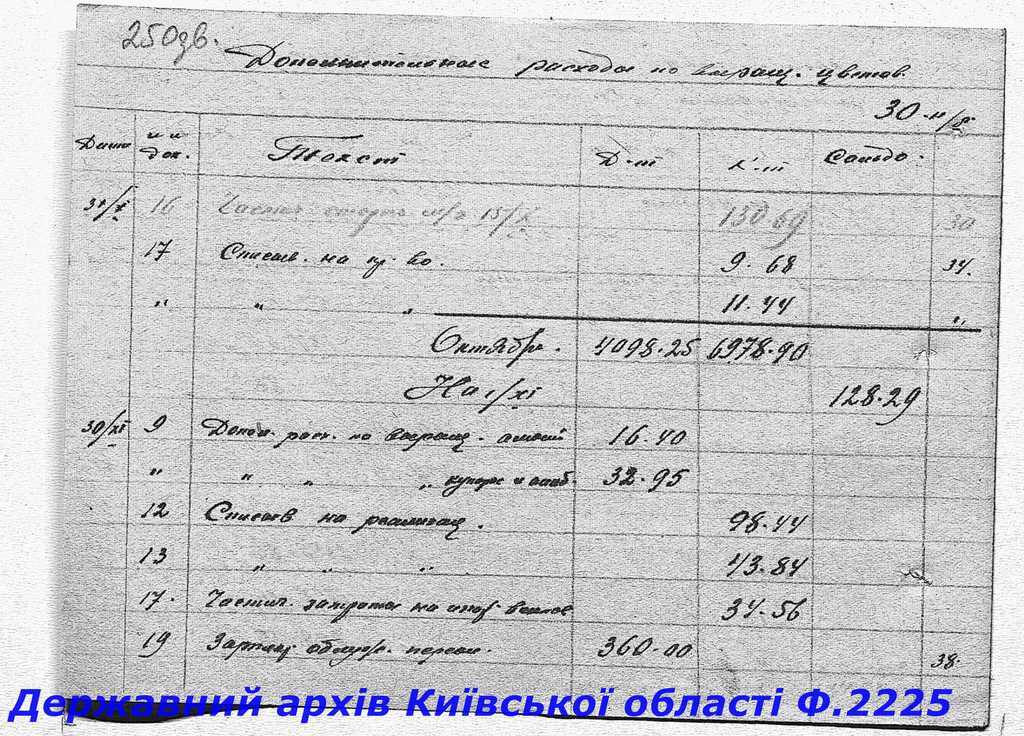 250 зв.
Дополнительные расходы по выращ. цветов.
30-
Дата док. Текст Д-т К-т Сальдо.
31/X 16 Частич. сторно 15/X 130 69 30
17 Списыв. на пр-во. 9. 68 34.
" " " 11. 44 "
Октябрь. 4098.25 6978.90
На 1/XI 128.29
30/XI 9 Допол. расх. по выращ. 16.40
" " " " 32.95
12 Списыв на реализац. 98.44
13 " " " 43.84
17. Частич. затраты на 34.56
19 Зарплат обслуж. персон. 360.00 38.
Державний архів Київської області Ф.2225